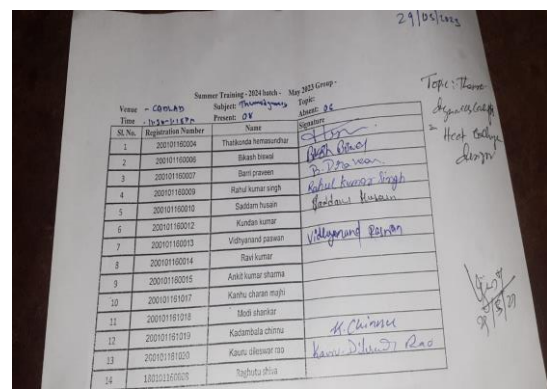 29/05/2023
Summer Training - 2024 batch - May 2023 Group -
Venue - CADLAD Subject: Thermodynamics Topic:
Time Present: 08 Absent: 06
Sl. No. Registration Number Name Signature
1 200101160004 Thatikonda hemasundhar
2 200101160006 Bikash biswal Bikash Biswal
3 200101160007 Barri praveen B. Praveen
4 200101160009 Rahul kumar singh Rahul Kumar Singh
5 200101160010 Saddam husain Saddam Husain
6 200101160012 Kundan kumar
7 200101160013 Vidhyanand paswan Vidhyanand Paswan
8 200101160014 Ravi kumar
9 200101160015 Ankit kumar sharma
10 200101161017 Kanhu charan majhi
11 200101161018 Modi shankar
12 200101161019 Kadambala chinnu K. Chinnu
13 200101161020 Kauru dileswar rao Kauru Dileswar Rao
14 180101160008 Raghutu shiva
Topic: Thermo
dynamics
Heat
design